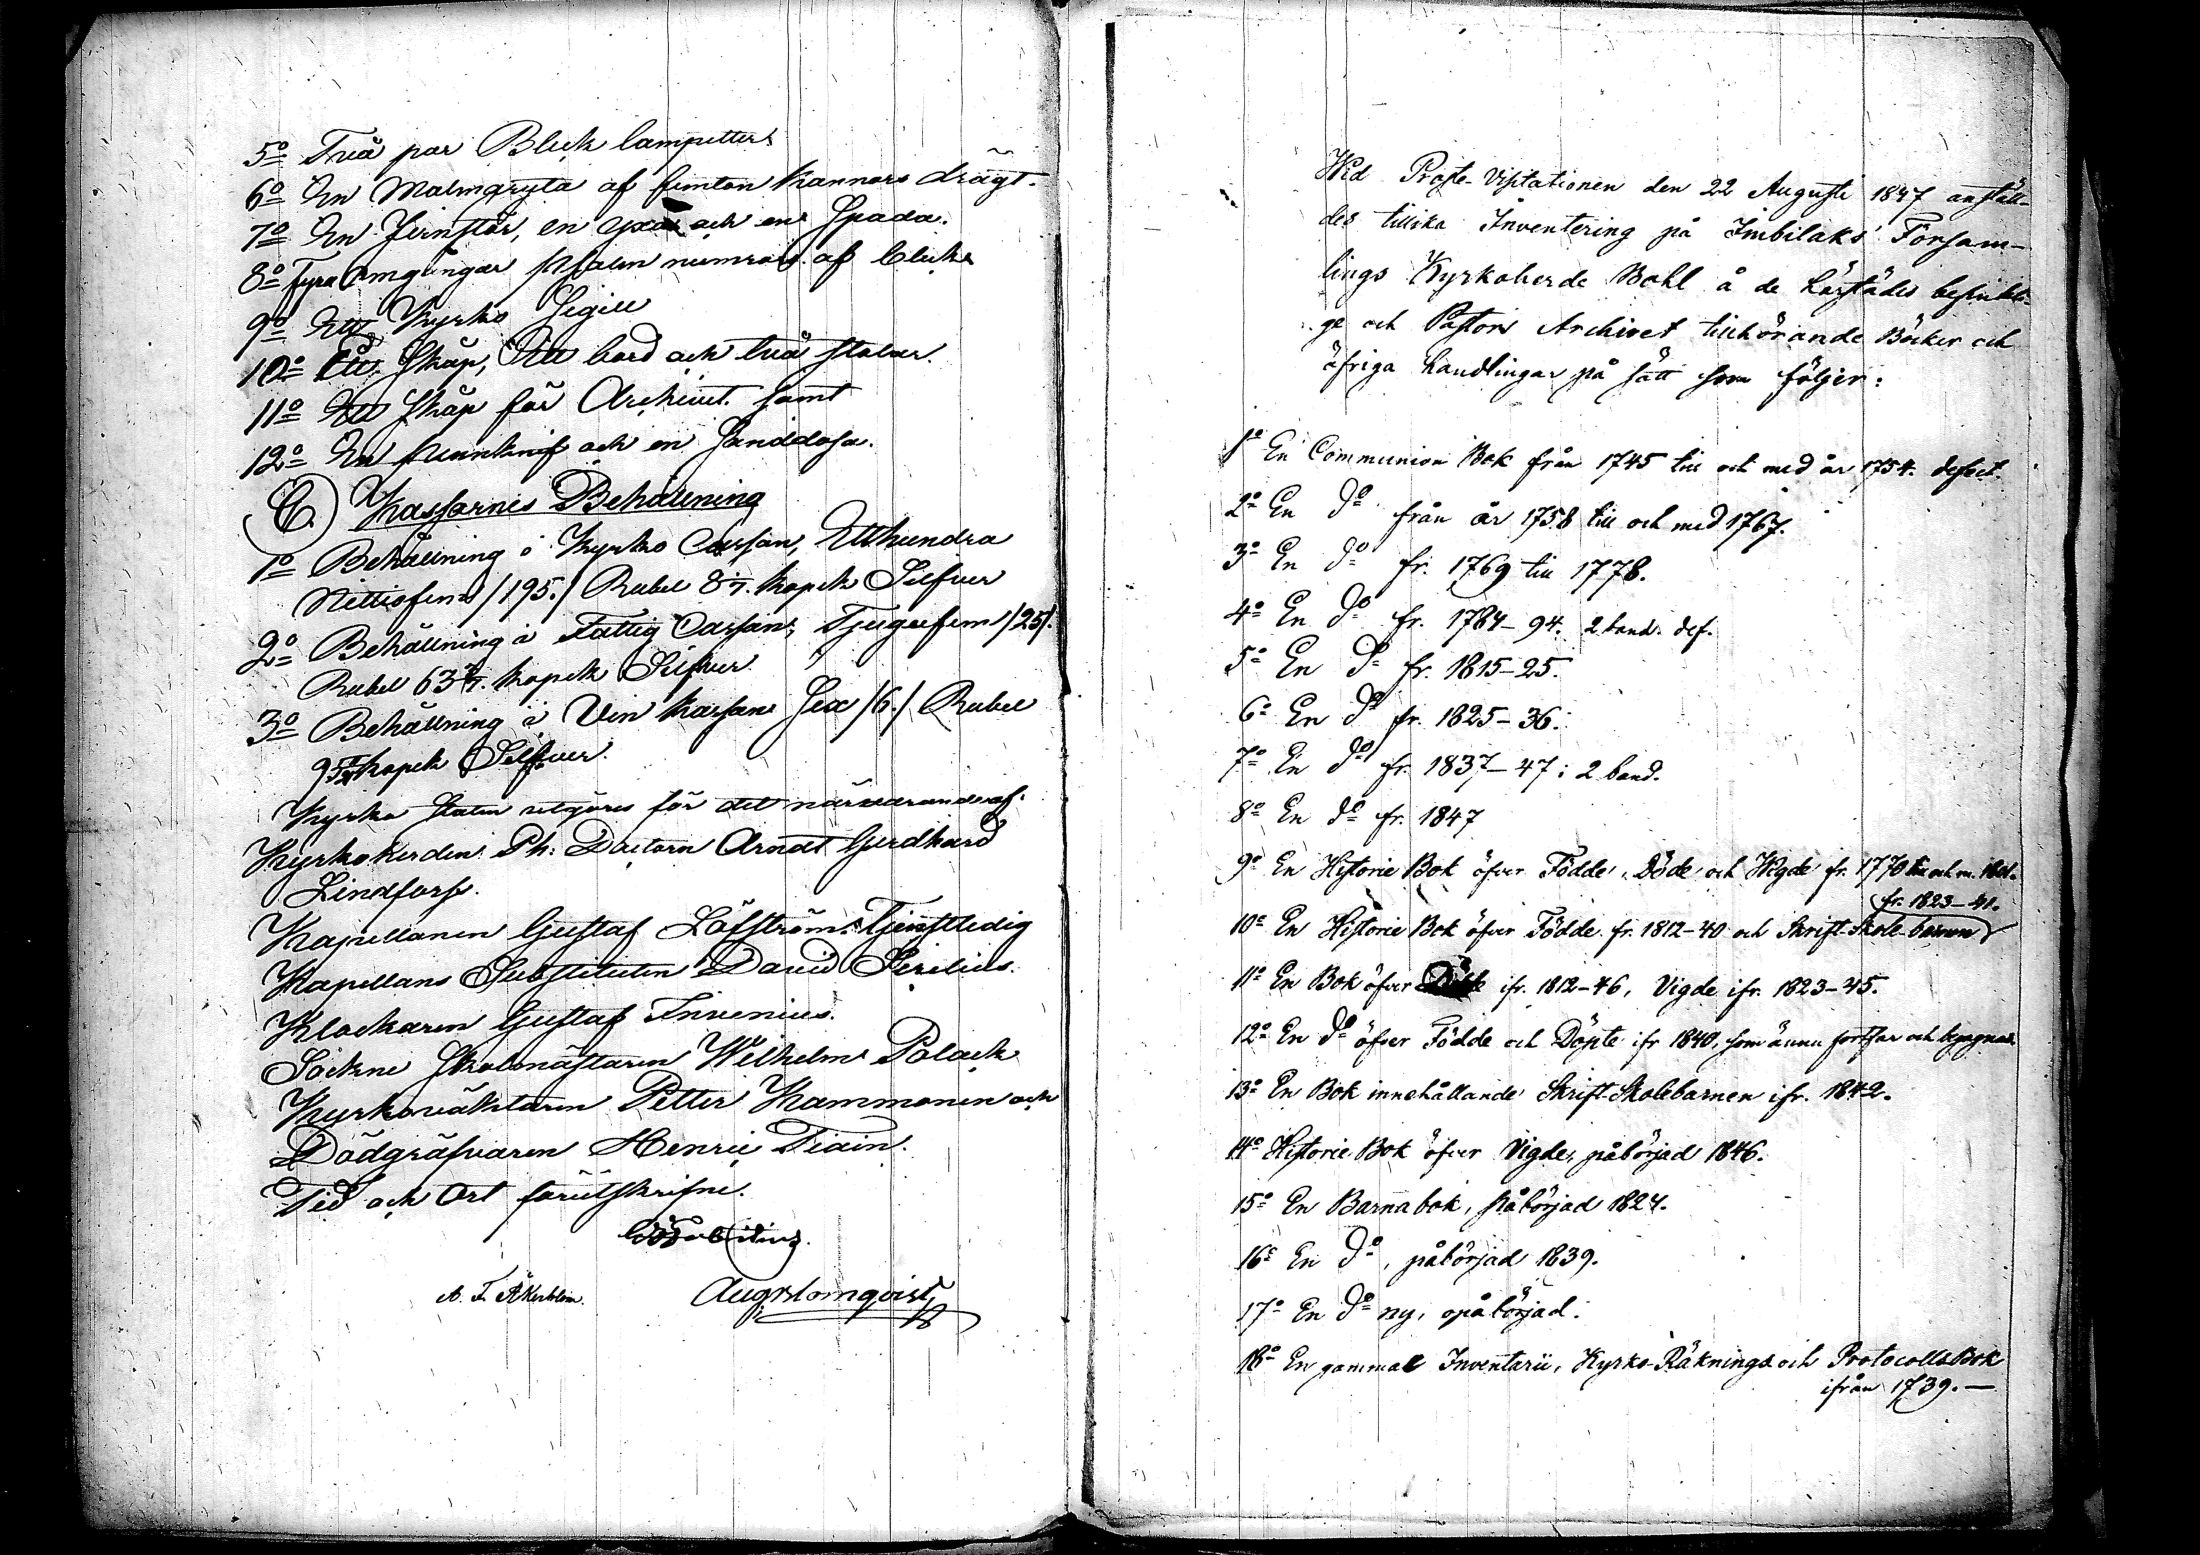 5o Två par Bleck lampetter
6o En Malmgryta af femton kannors drägt.
7o En Jernstör, en yxa och en Spada.
8o Fyra omgångar Psalm numror af bleck
9o Ett Kyrko Sigill
10o Ett Skåp, Ett bord och två stolar.
11o Ett skåp för Archivet samt
12o En pennknif och en Sanddosa.
C. Kassornes Behållning
1o Behållning i Kyrko Cassan, Etthundra
Nittiofem /195./ Rubel 8 4/7. kopek Silfver
2o Behållning i Fattig Cassan, Tjugufem /25/.
Rubel 63 kopek Silfver
3o Behållning i Vin kassan Sex /6./ Rubel
kopek Silfver.
Kyrko Staten utgöres för det närvarande af:
Kyrkoherden Ph. Doctorn Arndt Gerdhard
Lindforss.
Kapellanen Gustaf Löfström, Tjenstledig
Kapellans Substituten David Sirelius.
Klockaren Gustaf Invenius.
Sockne Skolmästaren Wilhelm Polack
Kyrkoväktaren Petter Kammonen och
Dödgräfvaren Henric Tiain.
Tid och Ort förutskrifne.
A. F. Åkerblom. Aug. Blomqvist
Wid Proste-Visitationen den 22 Augusti 1847 anställ-
des tillika Inventering på Imbilaks Försam-
lings Kyrkoherde Bohl å de härstädes befintli-
ge och Pastors Archivet tillhörande Böcker och
öfriga handlingar på sätt som följer:
1o En Communion Bok från 1745 till och med år 1754. defect.
2o En Do från år 1758 till och med 1767.
3o En do fr. 1769 till 1778.
4o En Do fr. 1784-94. 2 band. def.
5o En Do fr. 1815-25.
6o En Do fr. 1825-36.
7o En do fr. 1837-47 i 2 band.
8o En do fr. 1847
9o En Historie Bok öfver Födde, Döde och Wigde fr. 1770 till och m.
fr. 1823-41.
10o En Historie Bok öfver Födde fr. 1812-40 och Skrift-Skole-barnen
11o En Bok öfver Döde ifr. 1812-46, Vigde ifr. 1823-45.
12o En do öfver Födde och Döpte ifr 1840, som ännu fortfar och begagnas.
13o En Bok innehållande Skrift-Skolebarnen ifr. 1842.
14o Historie Bok öfver Vigde, påbörjad 1846.
15o En Barnabok, påbörjad 1824.
16o En do, påbörjad 1839.
17o En do ny, opåbörjad.
18o En gammal Inventarii, Kyrko-Räknings och Protocolls Bok
ifrån 1739.—